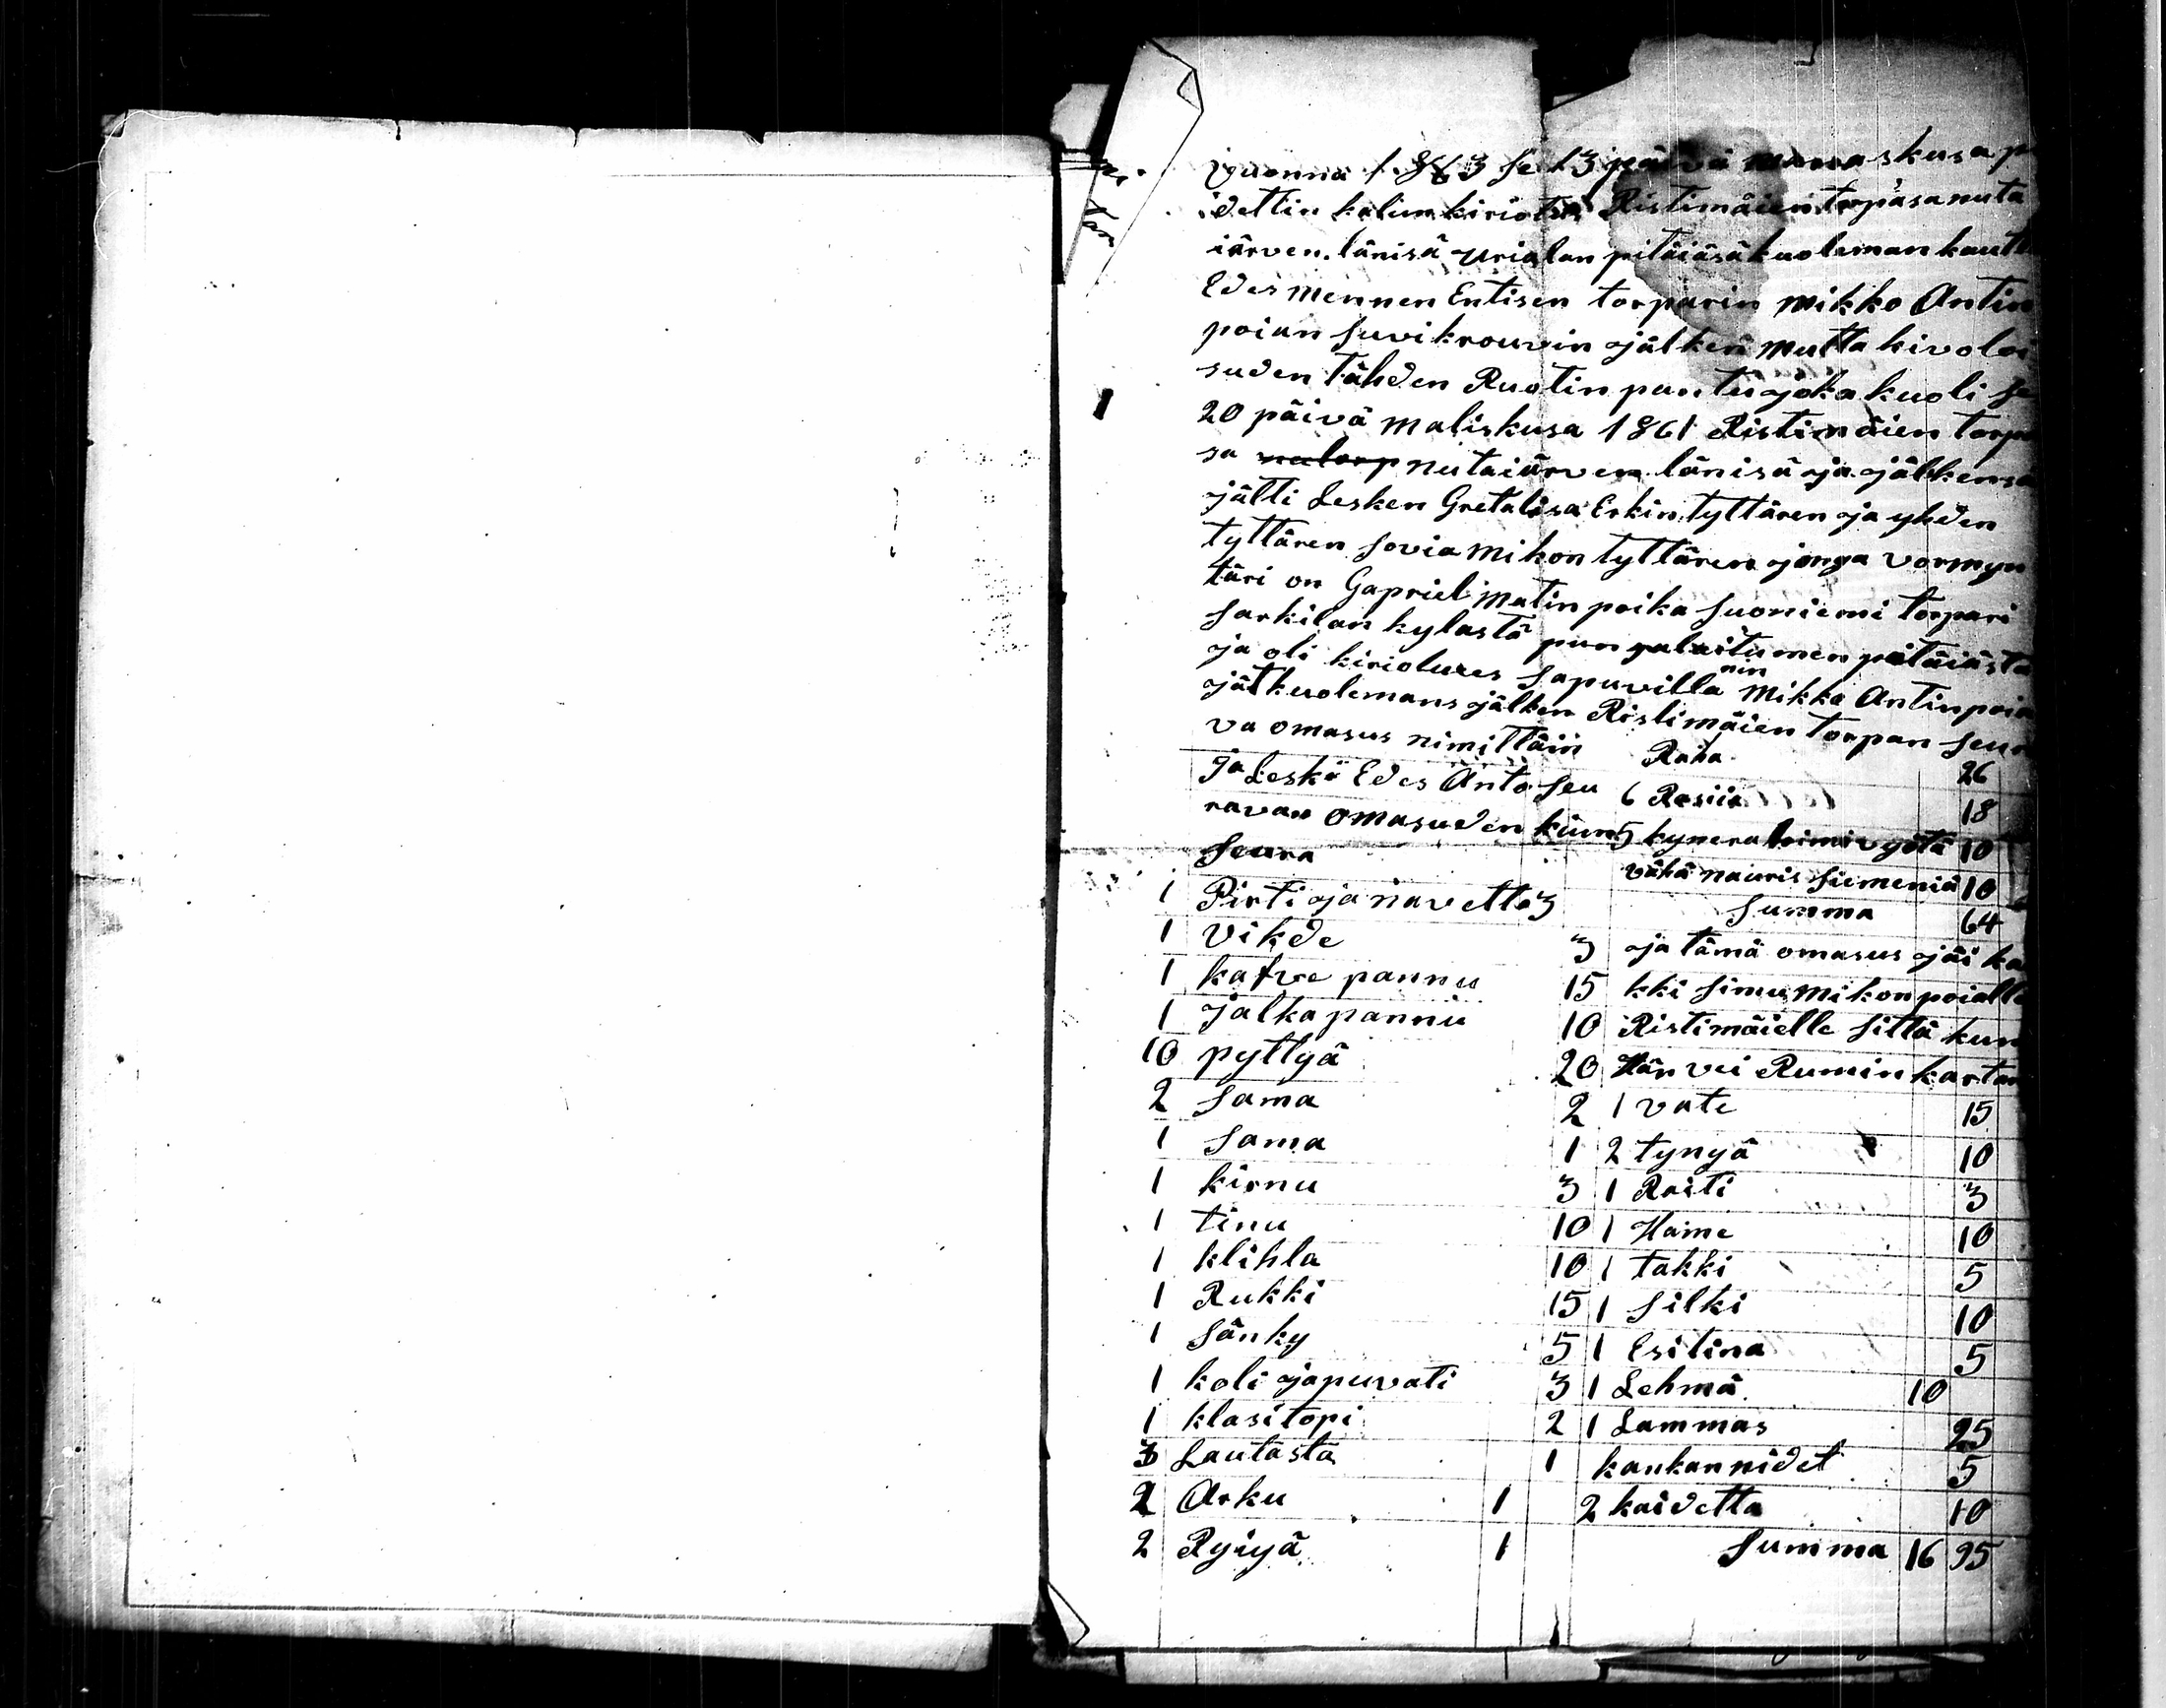 Vuonna 1863 se 13 päivä skusa
idettin kalun kiriotus Ristimäien torpasa nuta
iärven länisä urialan pitäiäsä kuoleman kautt
Edes mennen Entisen torparin Mikko Antin
poian Suvikrouvin jälken mutta kivoloi
suden tähden Ruotin pantu joka kuoli se
20 päivä maliskusa 1861 Ristimäien torpa
sa nutaiärven länisä ja jälkensä
jätti Lesken Gretalisa Erkin tyttären ja yhden
tyttären sovia Mikon tyttären jonga vormyn
täri on Gapriel Matin poika Suoniemi torpari
Sarkilan kylästä pungalaitumen pitäiästä
ja oli kiriolures Sapuvilla nin Mikko Antinpoia
jät kuolemans jälken Ristimäien torpan seur
va omasus nimittäin
ja Leski Edes Anto seu
ravan omasuden kiun
Seura
1 Pirti ja navetta 3
1 Vikde 3
1 kafve pannu 15
1 jalka pannu 10
10 pyttyä 20
2 Sama 2
1 Sama 1
1 kirnu 3
1 tinu 10
1 klihla 10
1 Rukki 15
1 Sänky 5
1 koli ja puvati 3
1 klasitopi 2
3 Lautasta 1
2 Arku 1
2 Ryiyä 1
Raha 26
6 Rasiia 18
5 kynerä toimivyötä 10
vähä nauris siemeniä 10
Summa 64
ja tämä omasus jäi ka
kki Simu Mikon poialle
Ristimäielle sittä kun
Hän vei Rumin kartan
1 vate 15
2 tynyä 10
1 Raiti 3
1 Hame 10
1 takki 5
1 Silki 10
1 Esilina 5
1 Lehmä 10
1 Lammas 25
kankan nidet 5
2 kaidetta 10
Summa 16 95